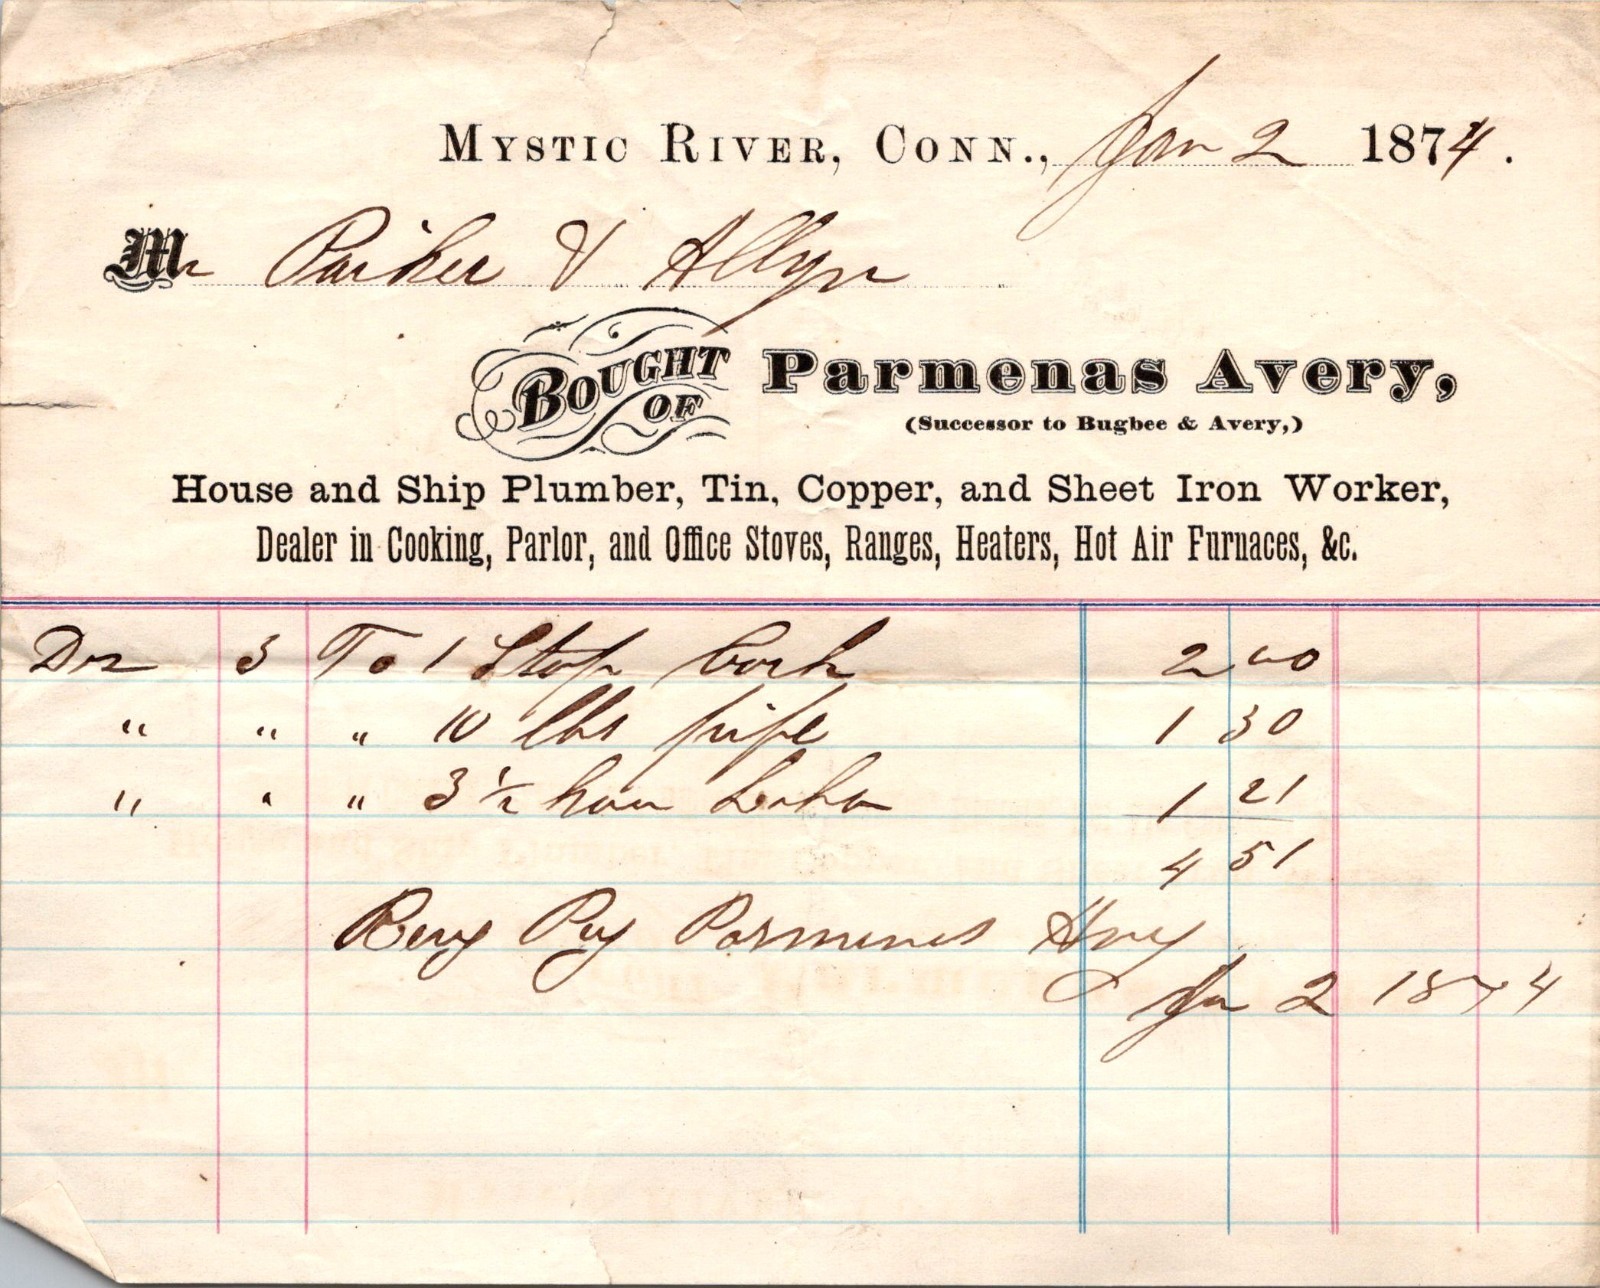 Mystic River, Conn., Jan 2 1874.
Mr Parker & Allyn
Bought of Parmenas Avery,
(Successor to Bugbee & Avery,)
House and Ship Plumber, Tin, Copper, and Sheet Iron Worker,
Dealer in Cooking, Parlor, and Office Stoves, Ranges, Heaters, Hot Air Furnaces, &c.
Dez 3 To 1 Stop Cock 2 00
" " " 10 lbs pipe 1 30
" " " 3 1/2 hour Labor 1 21
4 51
Parmenas Avery
Jan 2 1874